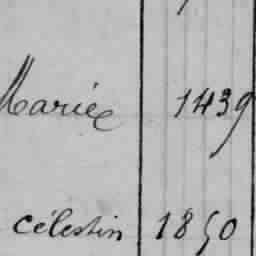 Mariée 1439
célestin 1850